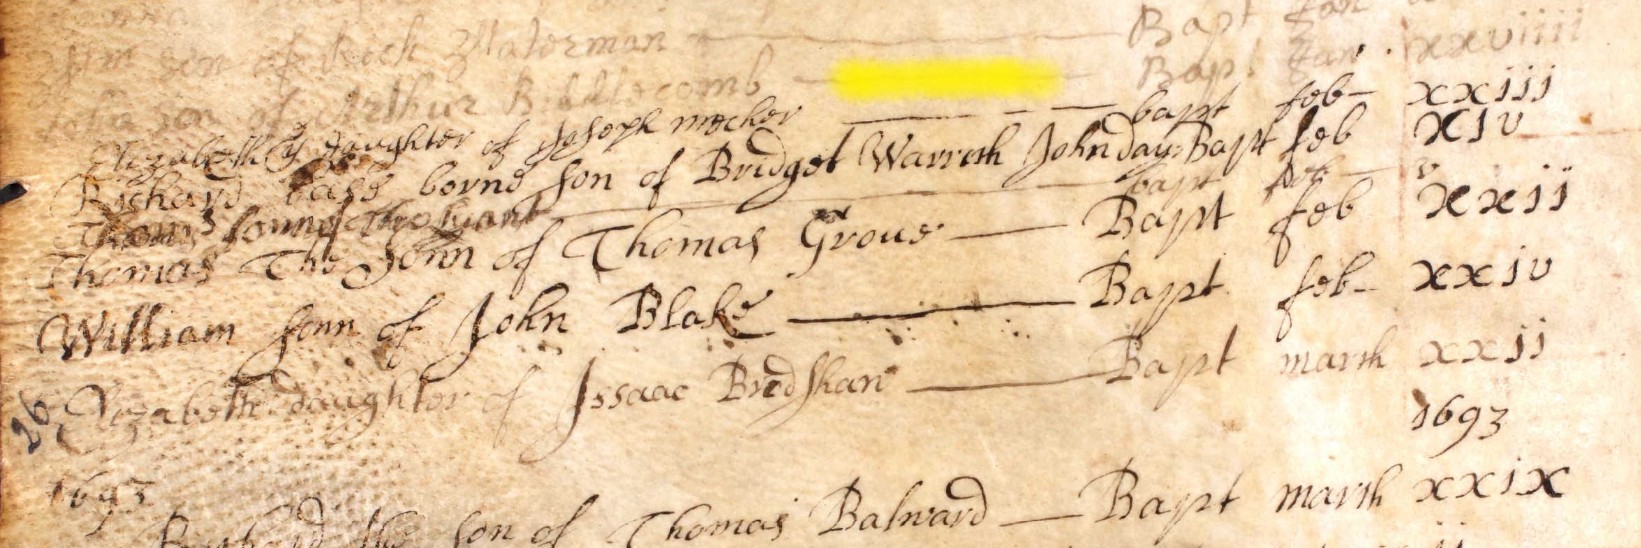 son of Rock Waterman Bapt Jan
son of Arthur Biddlecomb Bapt Jan xxviiii
Elizabeth yͤ daughter of Joseph mecker bapt feb xxiii
Richard base borne son of Bridget Warreth John day: Bapt feb xiv
Thoms sonn of bapt feb v
Thomas The Sonn of Thomas Groue Bapt feb xxii
William sonn of John Blake Bapt feb xxiv
26 Elizabeth daughter of Issaac Bredshan Bapt marsh xxii
1693
1693
Richard the son of Thomas Balward Bapt marsh xxix